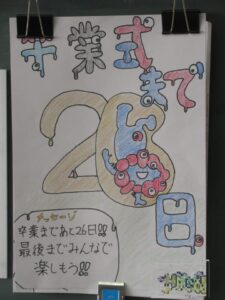 卒業式まで
26日
メッセージ
卒業まであと26日!!
最後までみんなで
楽しもう!!